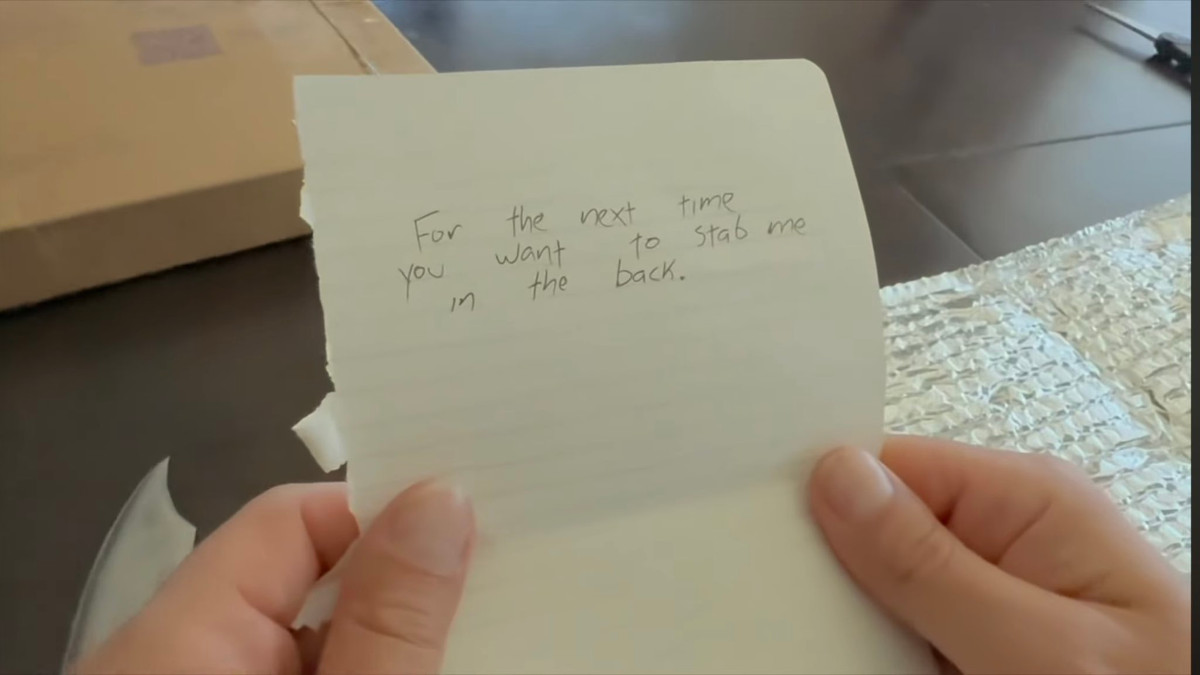 For the next time
you want to stab me
in the back.